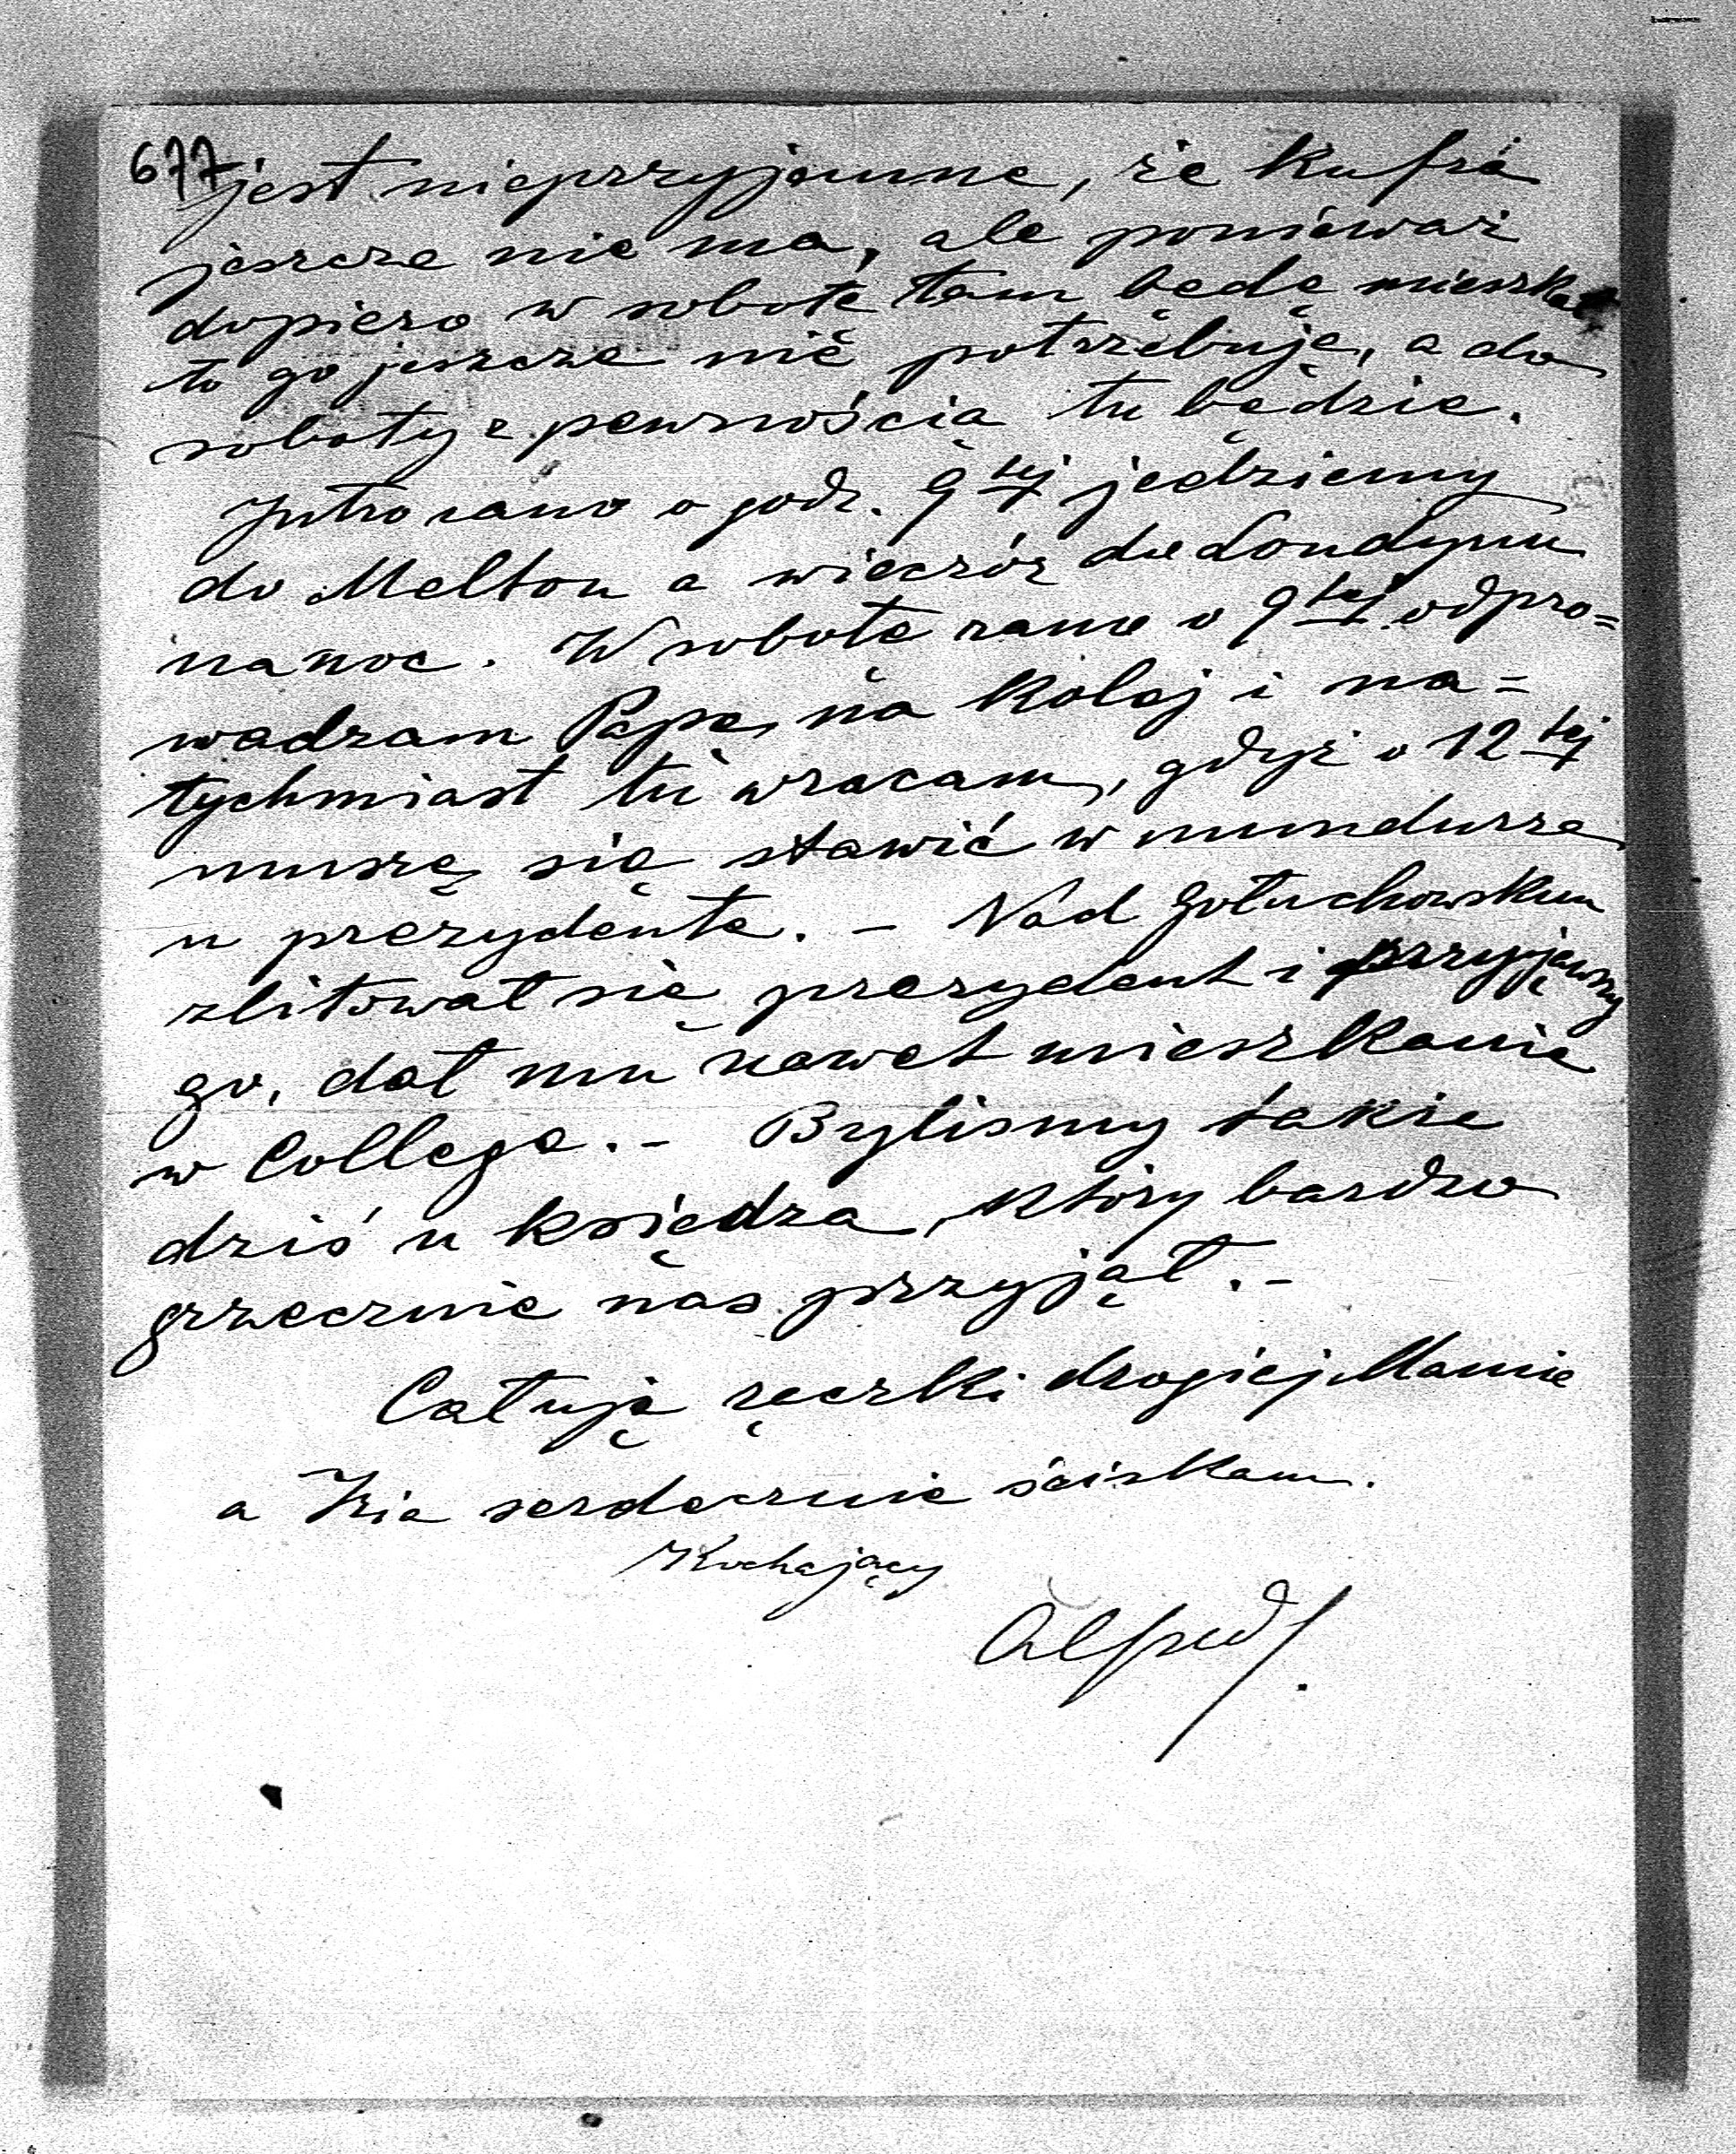 677
jest nieprzyjemne, że kufra
jeszcze nie ma, ale ponieważ
dopiero w sobotę tam będę mieszkał,
to go jeszcze nie potrzebuję, a do
soboty z pewnością tu będzie.
Jutro rano o godz. 9tej jedziemy
do Melton a wieczór do Londynu
na noc. W sobotę rano o 9tej odpro=
wadzam Papę na kolej i na=
tychmiast tu wracam, gdyż o 12tej
muszę się stawić w mundurze
u prezydenta. – Nad Gołuchowskim
zlitował się prezydent i przyjąwszy
go, dał mu nawet mieszkanie
w College. – Byliśmy także
dziś u księdza, który bardzo
grzecznie nas przyjął. –
Całuję rączki drogiej Mamie
a Izię serdecznie ściskam.
Kochający
Alfred.